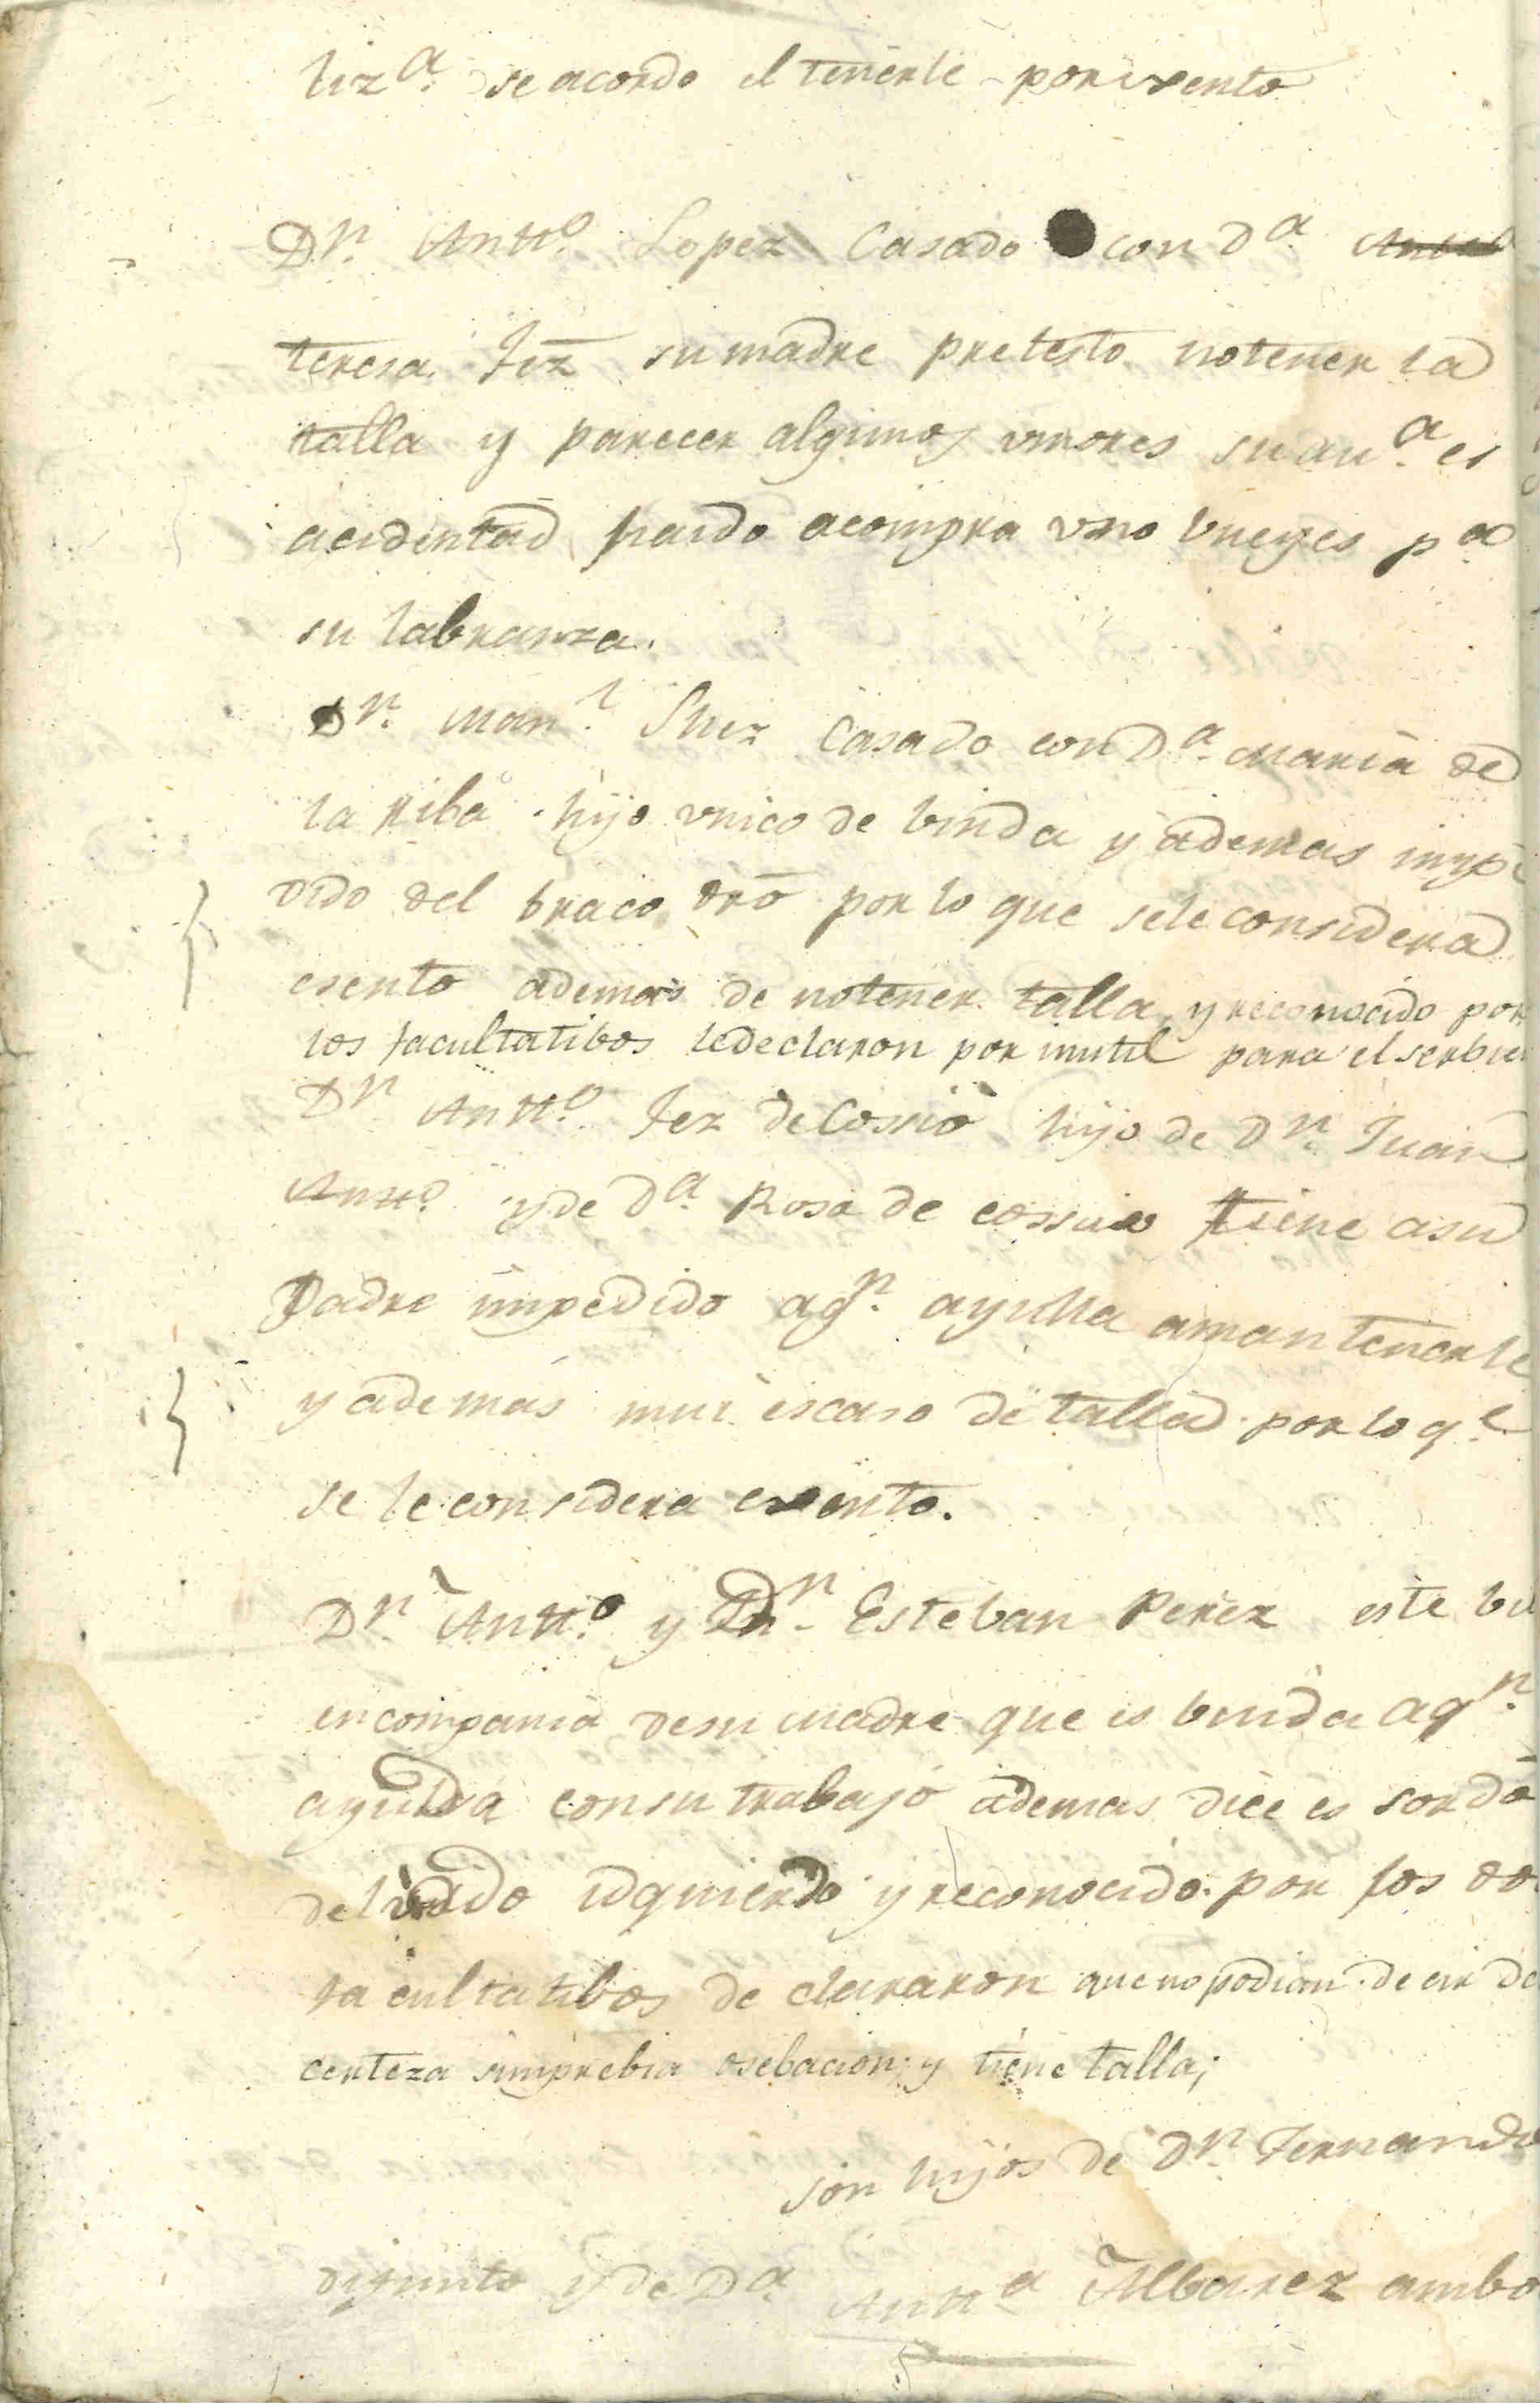 liz.ª se acordo el tenerle por exento
Dn. Antt.º Lopez Casado con D.ª
teresa Frz su madre pretesto no tener la
talla y parecer algunos umores su au.ª es
acidentad haido a compra uno bueyes p.ª
su labranza.
Dn. Man.l Shez Casado con D.ª Maria de
la Riba hijo unico de biuda y ademas impe
dido del braco dro por lo que se le considera
esento ademas de no tener talla y reconocido por
los facultatibos le declaron por inutil para el serbici
Dn Antt.º Fez de Cossio hijo de Dn. Juan
Antt.º y de D.ª Rosa de cossio tiene a su
Padre impedido a qn. ayuda a mantenerle
y ademas mui escaso de talla por lo q.e
se le considera exento.
Dn. Antt.º y Dn. Esteban Perez este bi
en compania de su madre que es biuda a qn.
ayuda con su trabajo ademas dice es sordo
del oido idquierdo y reconocido por los do
facultatibos de clararon que no podian decir de
certeza sin prebia osebacion y tiene talla;
son hijos de Dn. Fernando
difunto y de D.ª Antt.ª Albarez ambo